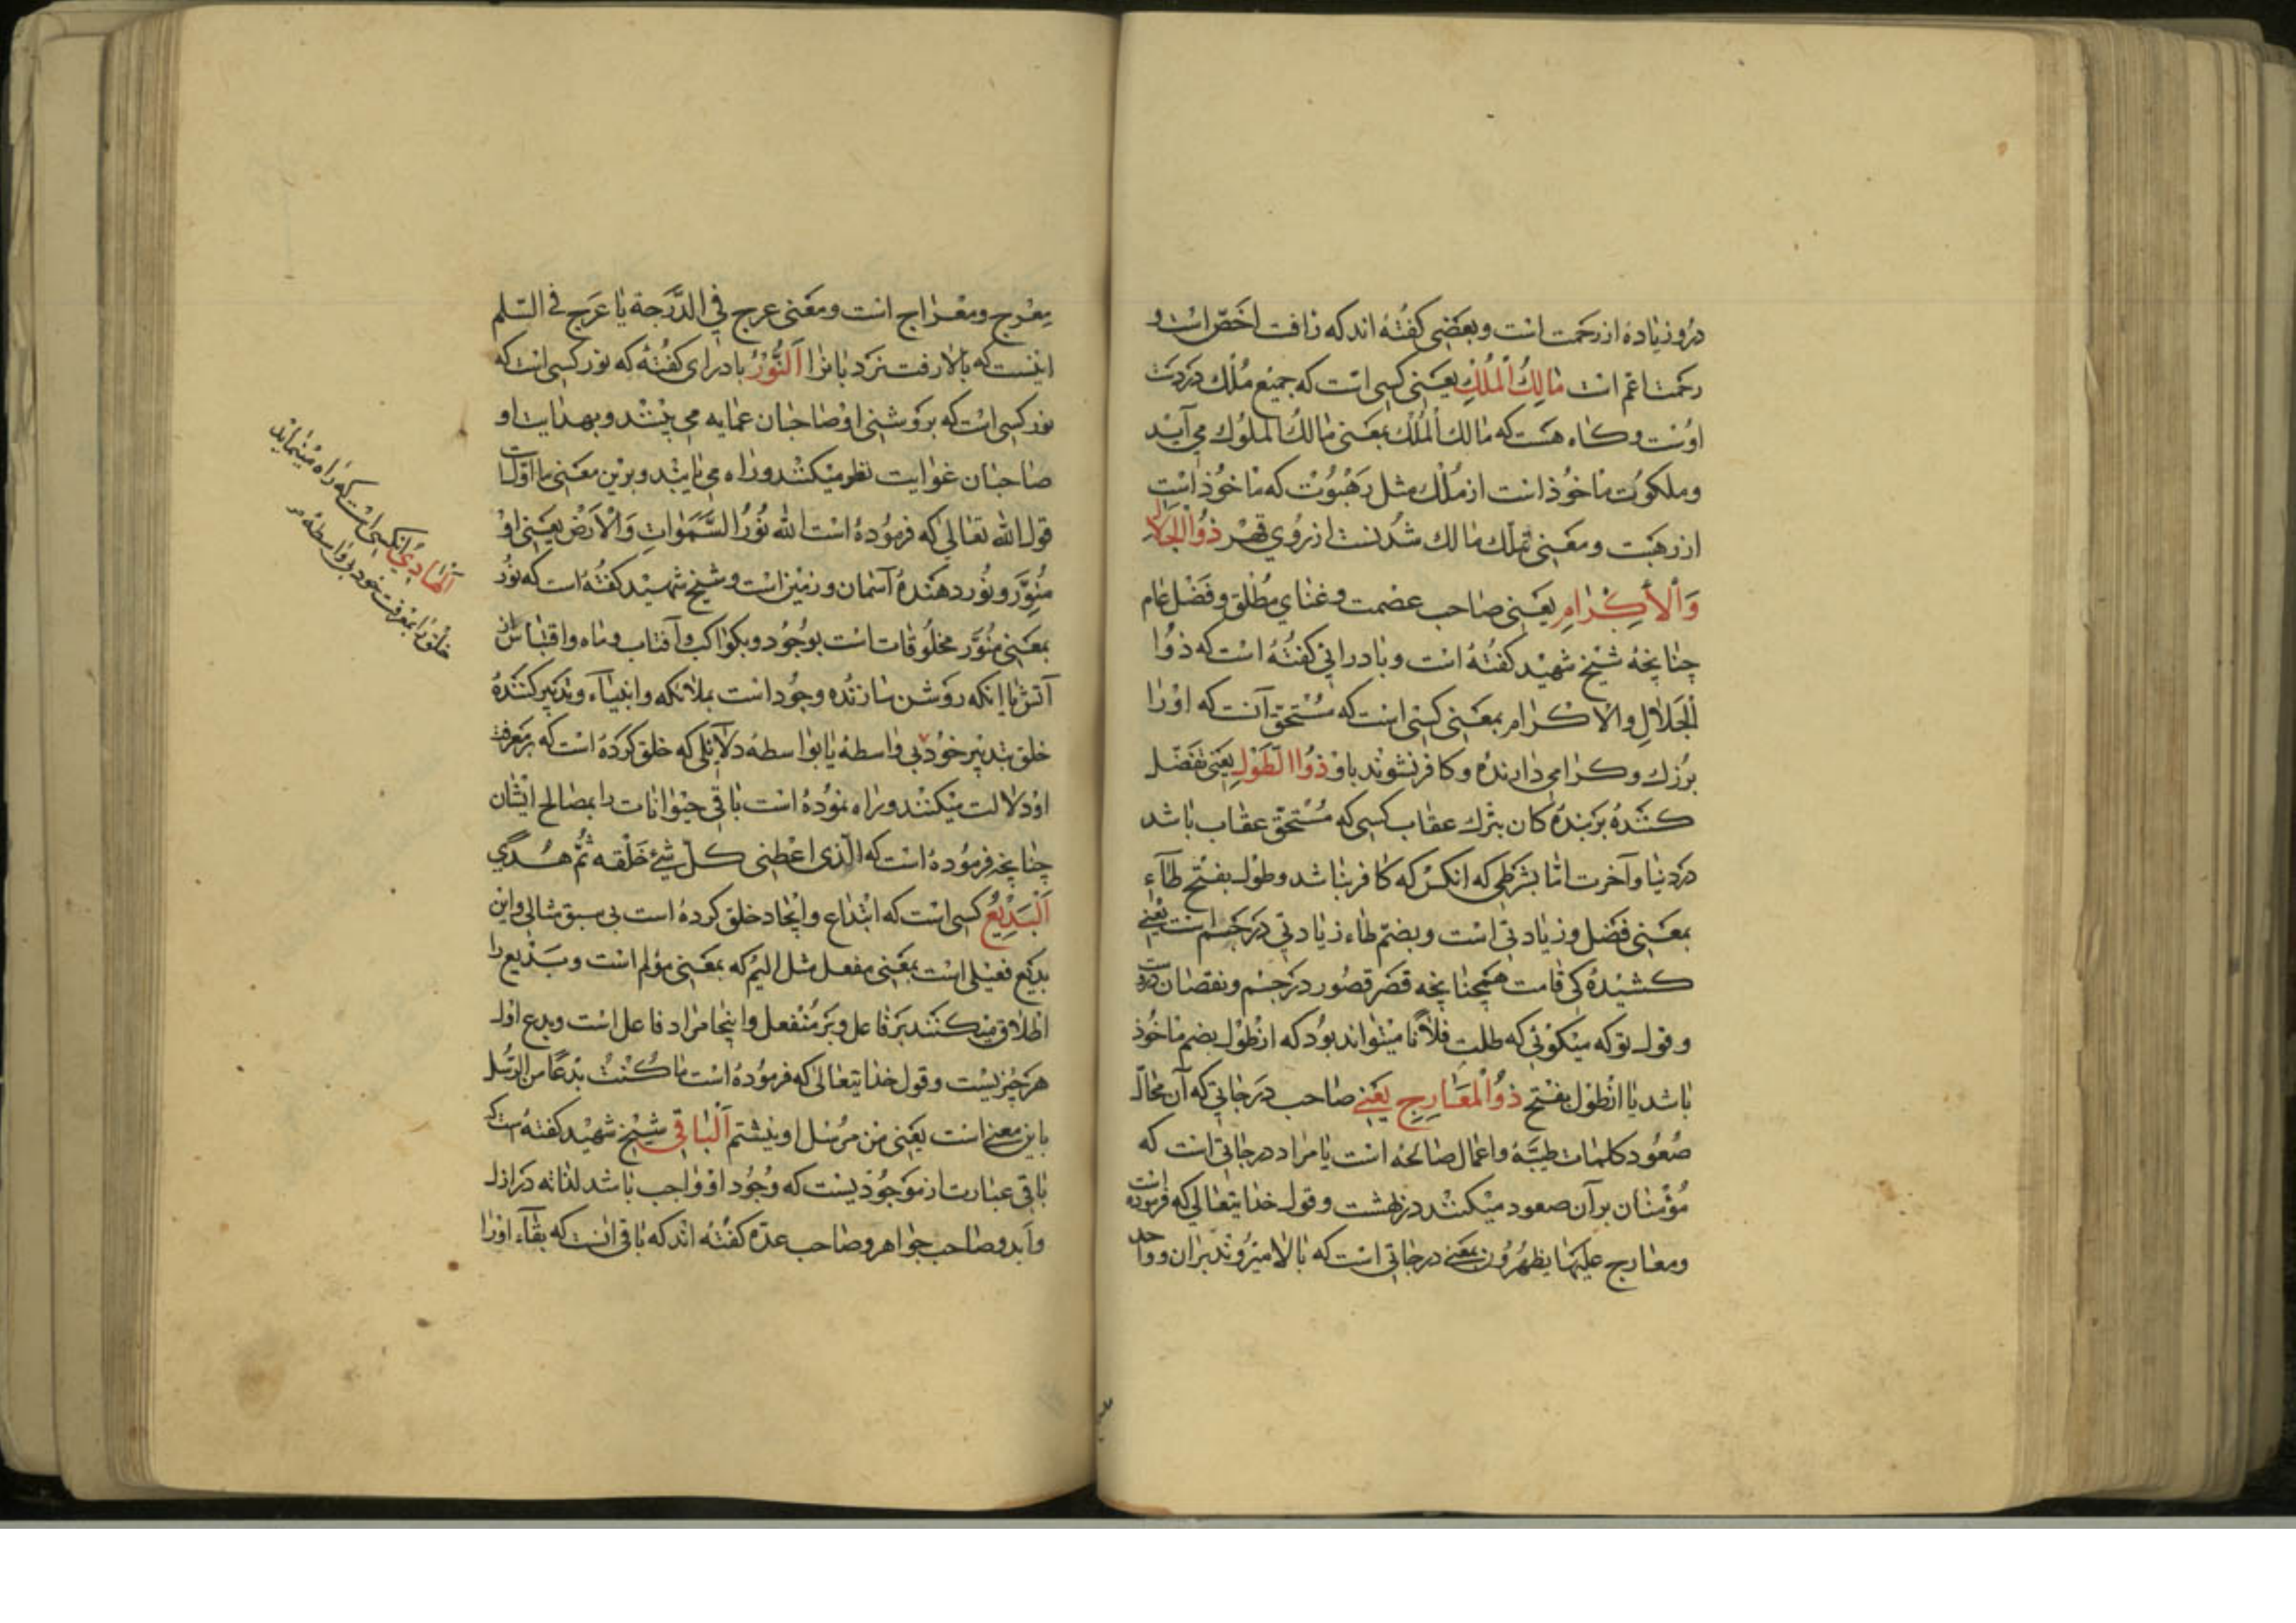 درو زیاده از رحمت است و بعضی گفته اند که رافت اخصّ است و
رحمت اعم است مَالِكُ الْمُلْكِ یعنی کسی است که جمیع مُلك در دست
اوست و گاه هست که مالك الملك بمعنی مالك الملوك می آید
و ملکوت ماخوذ است از ملك مثل رهبوت که ماخوذ است
از رهبت و معنی تملّك مالك شدنست از روی قهر ذُوالْجَلالِ
وَالْأِكْرٰامِ یعنی صاحب عضمت و غنای مطلق و فضل عام
چنانچه شیخ شهید گفته است و بادرائی گفته است که ذُوا
لْجَلالِ والاکرام بمعنی کسی است که مستحق آنست که اورا
بزرك و کرامی دارنده و کافر نشوند باو ذُواالطَّوْلِ یعنی تفضّل
کننده بر بنده کان بترك عقاب کسی که مستحق عقاب باشد
در دنیا و آخرت امّا بشرطی که انکس که کافر نباشد و طول بفتح طآء
بمعنی فضل و زیادتی است و بضم طاء زیادتی در جسم است یعنی
کشیده کی قامت همچنانچه قصر قصور در جسم و نقصان دروست
و قول تو که میکوئی که طلت فلاناً میتواند بود که از طول بضم ماخوذ
باشد یا از طول بفتح ذُوالْمَعَارِجِ یعنی صاحب درجاتی که آن محالّ
صعود کلمات طیبه و اعمال صالحه است یا مراد درجاتی است که
مؤمنان بر آن صعود میکنند در بهشت و قول خدایتعالی که فرموده است
و معارج علیها یظهرون بمعنی درجاتی است که بالا میروند بران و واحد
معرج و معراج است و معنی عرج في الدَّرَجة یا عَرَج في السّلم
اینست که بالا رفت نزدبانرا اَلنُّوْرُ بادرای گفته که نور کسی است که
نور کسی است که بروشنی او صاحبان عمایه می بینند و بهدایت او
صاحبان غوایت نظر میکنند و راه می یابند و برین معنی ما اوّلست
قول الله تعالی که فرموده است الله نُوْرُ السَّمَوٰاتِ وَالْاَرْضِ یعنی او
منوّر و نور دهندهٔ آسمان و زمین است و شیخ شهید گفته است که نور
بمعنی منوّر مخلوقات است بوجود و بکواکب و آفتاب و ماه و اقتباس از
آتش یا انکه روشن سازنده وجود است بملائکه و انبیاء و تدبیر کننده
خلق بتدبیر خود بی واسطه یا بواسطه دلائلی که خلق کرده است که بر معرفت
او دلالت میکنند و راه نموده است باقی حیوانات را بمصالح ایشان
چنانچه فرموده است که الّذی اعطی کلّ شئ خلقه ثمّ هُدي
اَلْبَدِیْعُ کسی است که ابتداع و ایجاد خلق کرده است بی سبق مثالی و این
بدیع فعیلی است بمعنی مفعل مثل الیم که بمعنی مؤلم است و بدیع را
اطلاق میکنند بر فاعل و بر منفعل و اینجا مراد فاعل است و بدع اول
هر چیزیست و قول خدایتعالی که فرموده است ما کنت بدعاً من الرّسل
باین معنی است یعنی من مرسل او نیستم اَلْبٰاقِي شیخ شهید گفته است که
باقی عبارت از موجودیست که وجود او واجب باشد لذاته در ازل
و ابد و صاحب جواهر و صاحب عدّه گفته اند که باقی انست که بقآء اورا
اَلْهَادِيُ انکسی است که راه مینماید
خلق را بمعرفت خود بی واسطه